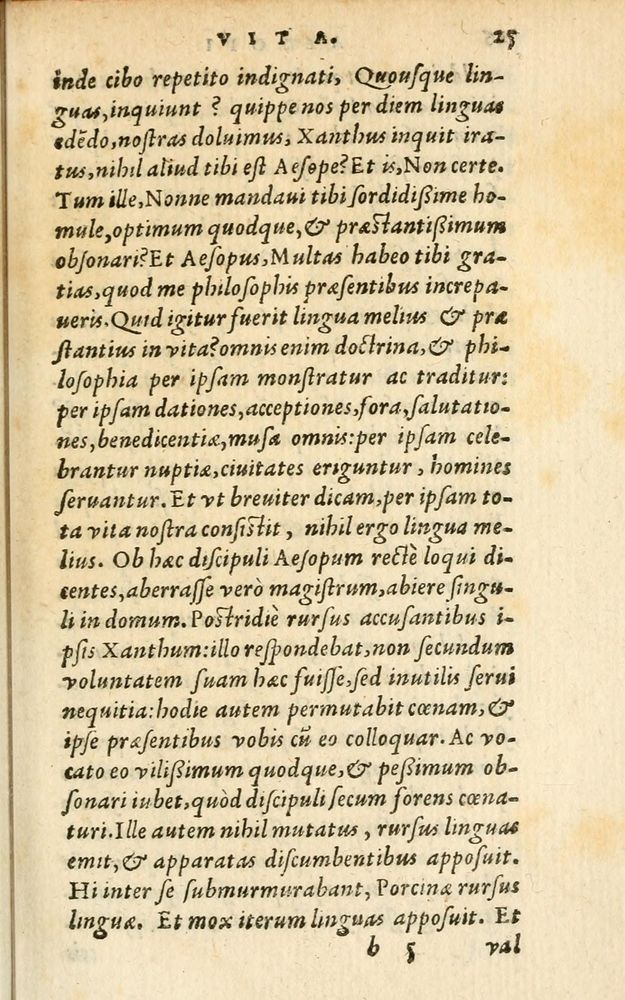 VITA. 25
inde cibo repetito indignati, Quouſque lin-
guas, inquiunt ? quippe nos per diem linguas
edēdo, noſtras doluimus, Xanthus inquit ira-
tus, nihil aliud tibi eſt Aeſope? Et is, Non certe.
Tum ille, Nonne mandaui tibi ſordidißime ho-
mule, optimum quodque, & præſtantißimum
obſonari? Et Aeſopus, Multas habeo tibi gra-
tias, quod me philoſophis præſentibus increpa-
ueris. Quid igitur fuerit lingua melius & præ
ſtantius in vita? omnis enim doctrina, & phi-
loſophia per ipſam monſtratur ac traditur:
per ipſam dationes, acceptiones, fora, ſalutatio-
nes, benedicentiæ, muſa omnis: per ipſam cele-
brantur nuptiæ, ciuitates eriguntur, homines
ſeruantur. Et vt breuiter dicam, per ipſam to-
ta vita noſtra conſiſtit, nihil ergo lingua me-
lius. Ob hæc diſcipuli Aeſopum rectè loqui di-
centes, aberraſſe verò magiſtrum, abiere ſingu-
li in domum. Poſtridiè rurſus accuſantibus i-
pſis Xanthum: illo reſpondebat, non ſecundum
voluntatem ſuam hæc fuiſſe, ſed inutilis ſerui
nequitia: hodie autem permutabit cœnam, &
ipſe præſentibus vobis cū eo colloquar. Ac vo-
cato eo vilißimum quodque, & peßimum ob-
ſonari iubet, quòd diſcipuli ſecum forens cœna-
turi. Ille autem nihil mutatus, rurſus linguas
emit, & apparatas diſcumbentibus appoſuit.
Hi inter ſe submurmurabant, Porcinæ rurſus
linguæ. Et mox iterum linguas appoſuit. Et
b 5 val